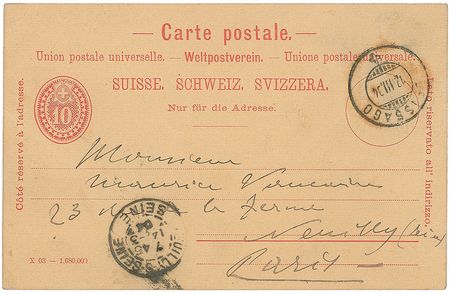 Carte postale.
Union postale universelle. — Weltpostverein. — Unione postale universale.
SUISSE. SCHWEIZ. SVIZZERA.
Nur für die Adresse.
Côté réservé à l'adresse.
10
Lato riservato all' indirizzo.
12.VII.04
Monsieur
Maurice
23 la ferme
Neuilly (Seine)
Paris
SEINE
X 03 — 1,680,000